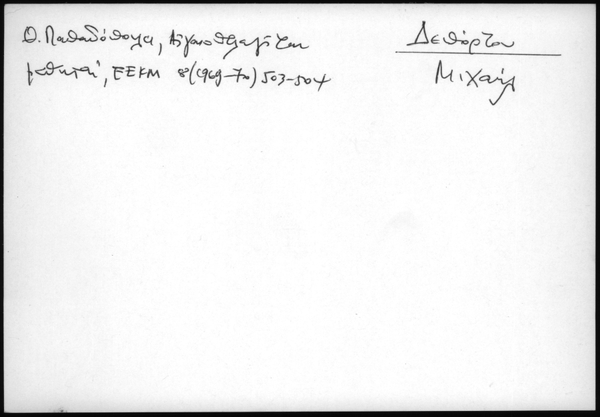 Θ. Παπαδόπουλλου, Αἰγαιοπελαγῖται
μαθηταί, ΕΕΚΜ 8 (1969-70) 503-504
Δεπόρτου
Μιχαήλ